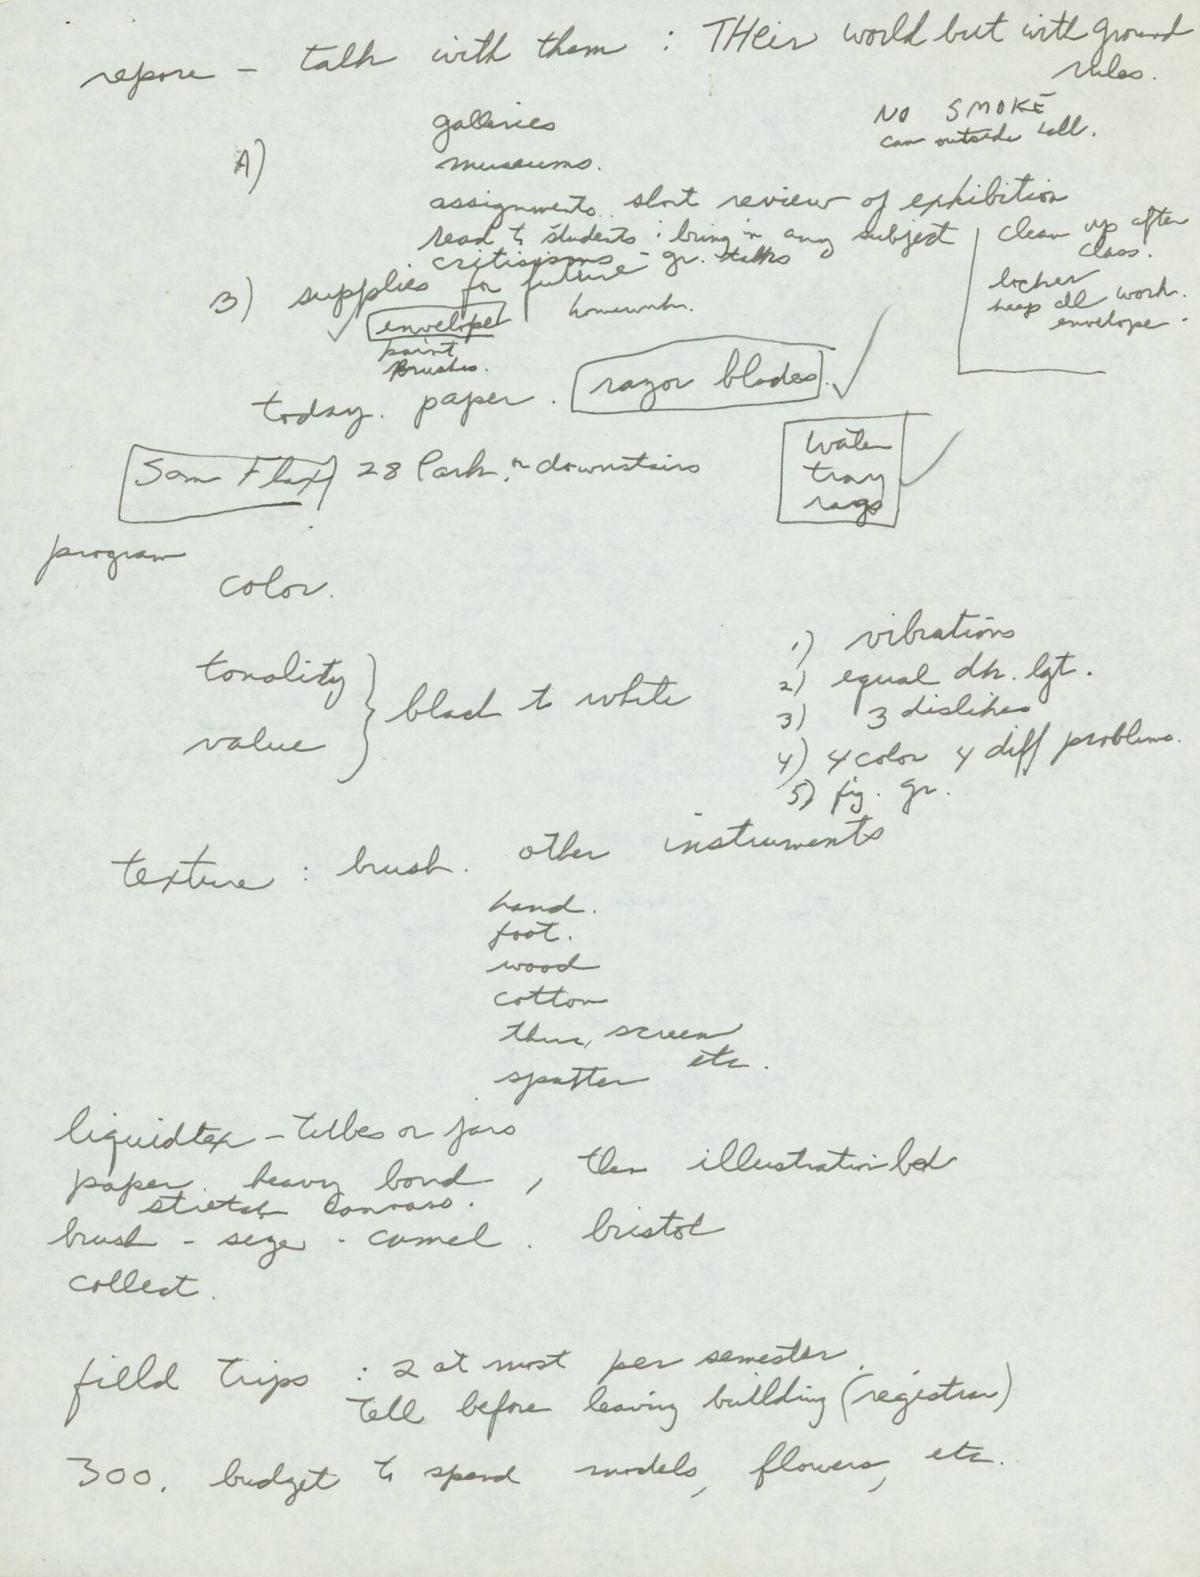 repore - talk with them : THeir world but with ground
rules.
NO SMOKE
can outside hall.
A) galleries
museums.
assignments.. short review of exhibition
read to students : bring in any subject
critisisms - gr. talks
clean up after
class.
locker
keep all work.
envelope.
B) supplies for future
envelope homework.
paint
brushes.
today. paper. razor blades.
water
tray
rags
Sam Flax 28 Park. or downstairs
program
color.
tonality
value } black to white
1) vibrations
2) equal dk. lgt.
3) 3 dislikes
4) 4 color 4 diff problems.
5) fig. gr.
texture : brush. other instruments
hand.
foot.
wood
cotton
thru, screen
spatter etc.
liquidtex - tubes or jars
paper. heavy bond, then illustration bd
stretch canvass.
brush - size - camel. bristol
collect.
field trips : 2 at most per semester.
tell before leaving building (registrar)
300. budget to spend models, flowers, etc.